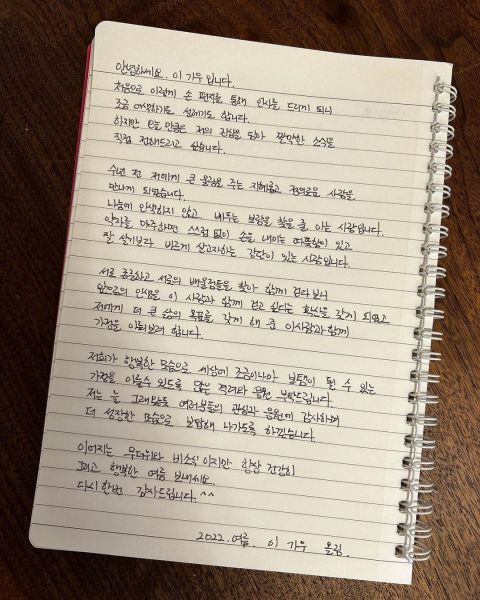 안녕하세요. 이 가우 입니다.
처음으로 이렇게 손 편지를 통해 인사를 드리게 되니
조금 어색하기도 설레기도 합니다.
하지만 오늘 만큼은 저의 진심을 담아 짤막한 소식을
직접 전해드리고 싶습니다.
수년 전 저에게 큰 울림을 주는 지혜롭고 정의로운 사람을
만나게 되었습니다.
나눔에 인색하지 않고, 베푸는 보람을 찾을 줄 아는 사람입니다.
약자를 마주하면 스스럼 없이 손을 내미는 따뜻함이 있고
잘 살기보다 바르게 살고자하는 강단이 있는 사람입니다.
서로 존중하고 서로의 배울점들을 찾아 함께 걷다보니
앞으로의 인생을 이 사람과 함께 걷고 싶다는 확신을 갖게 되었고
저에게 더 큰 삶의 목표를 갖게 해 준 이사람과 함께
가정을 이뤄보려 합니다.
저희가 행복한 모습으로 세상에 조금이나마 보탬이 될 수 있는
가정을 이룰수 있도록 많은 격려와 응원 부탁드립니다.
저는 늘 그래왔듯 여러분들의 관심과 응원에 감사하며
더 성장한 모습으로 보답해 나가도록 하겠습니다.
이어지는 무더위와 비소식이지만 항상 건강히
그리고 행복한 여름 보내세요.
다시 한번 감사드립니다. ^^
2022. 여름. 이 가우 올림.